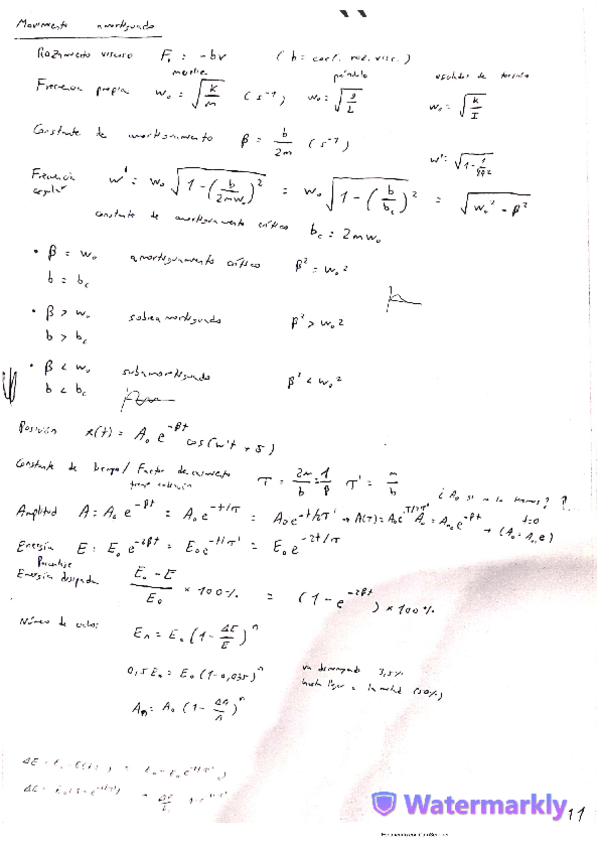 Movimiento amortiguado
Rozamiento viscoso F_r = -bv (b = coef. roz. visc.)
muelle péndulo oscilador de torsión
Frecuencia propia w₀ = √(k/m) (s⁻¹) w₀ = √(g/L) w₀ = √(k/I)
Constante de amortiguamiento β = b/2m (s⁻¹)
w' = √(1 - 1/4Q²)
Frecuencia angular w' = w₀ √(1 - (b/2mw₀)²) = w₀ √(1 - (b/b_c)²) = √(w₀² - β²)
constante de amortiguamiento crítico b_c = 2mw₀
• β = w₀ amortiguamiento crítico β² = w₀²
b = b_c
• β > w₀ sobreamortiguado β² > w₀²
b > b_c
• β < w₀ subamortiguado β² < w₀²
b < b_c
Posición x(t) = A₀ e^(-βt) cos(w't + δ)
Constante de tiempo / Factor de τ = 2m/b = 1/β τ' = m/b
Amplitud A = A₀ e^(-βt) = A₀ e^(-t/τ) = A₀ e^(-t/2τ')
Energía E = E₀ e^(-2βt) = E₀ e^(-t/τ') = E₀ e^(-2t/τ)
Porcentaje
Energía disipada (E₀ - E)/E₀ × 100% = (1 - e^(-2βt)) × 100%
Número de ciclos: E_n = E₀ (1 - ΔE/E)^n
0,5E₀ = E₀ (1 - 0,035)^n va descargando 3,5%
hasta llegar a la mitad (50%)
A_n = A₀ (1 - ΔA/A)^n
Watermarkly
11